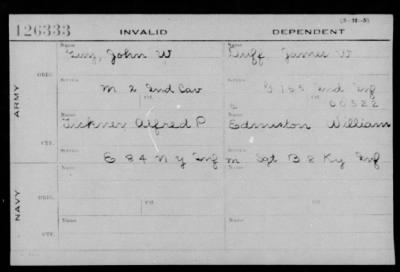 (3-312-5)
126333 INVALID DEPENDENT
Name Name
Guy, John W Duff, James W
ORIG.
Service Service
M 2 Ind Cav G 155 Ind Inf
Of C Of 00322
ARMY
Name Name
Tickner Alfred P Edmiston William
CTF.
Service Service
E 84 N Y Inf M Sgt B 8 Ky Inf
Name Name
ORIG.
Service Service
NAVY
Of Of
Name Name
CTF.